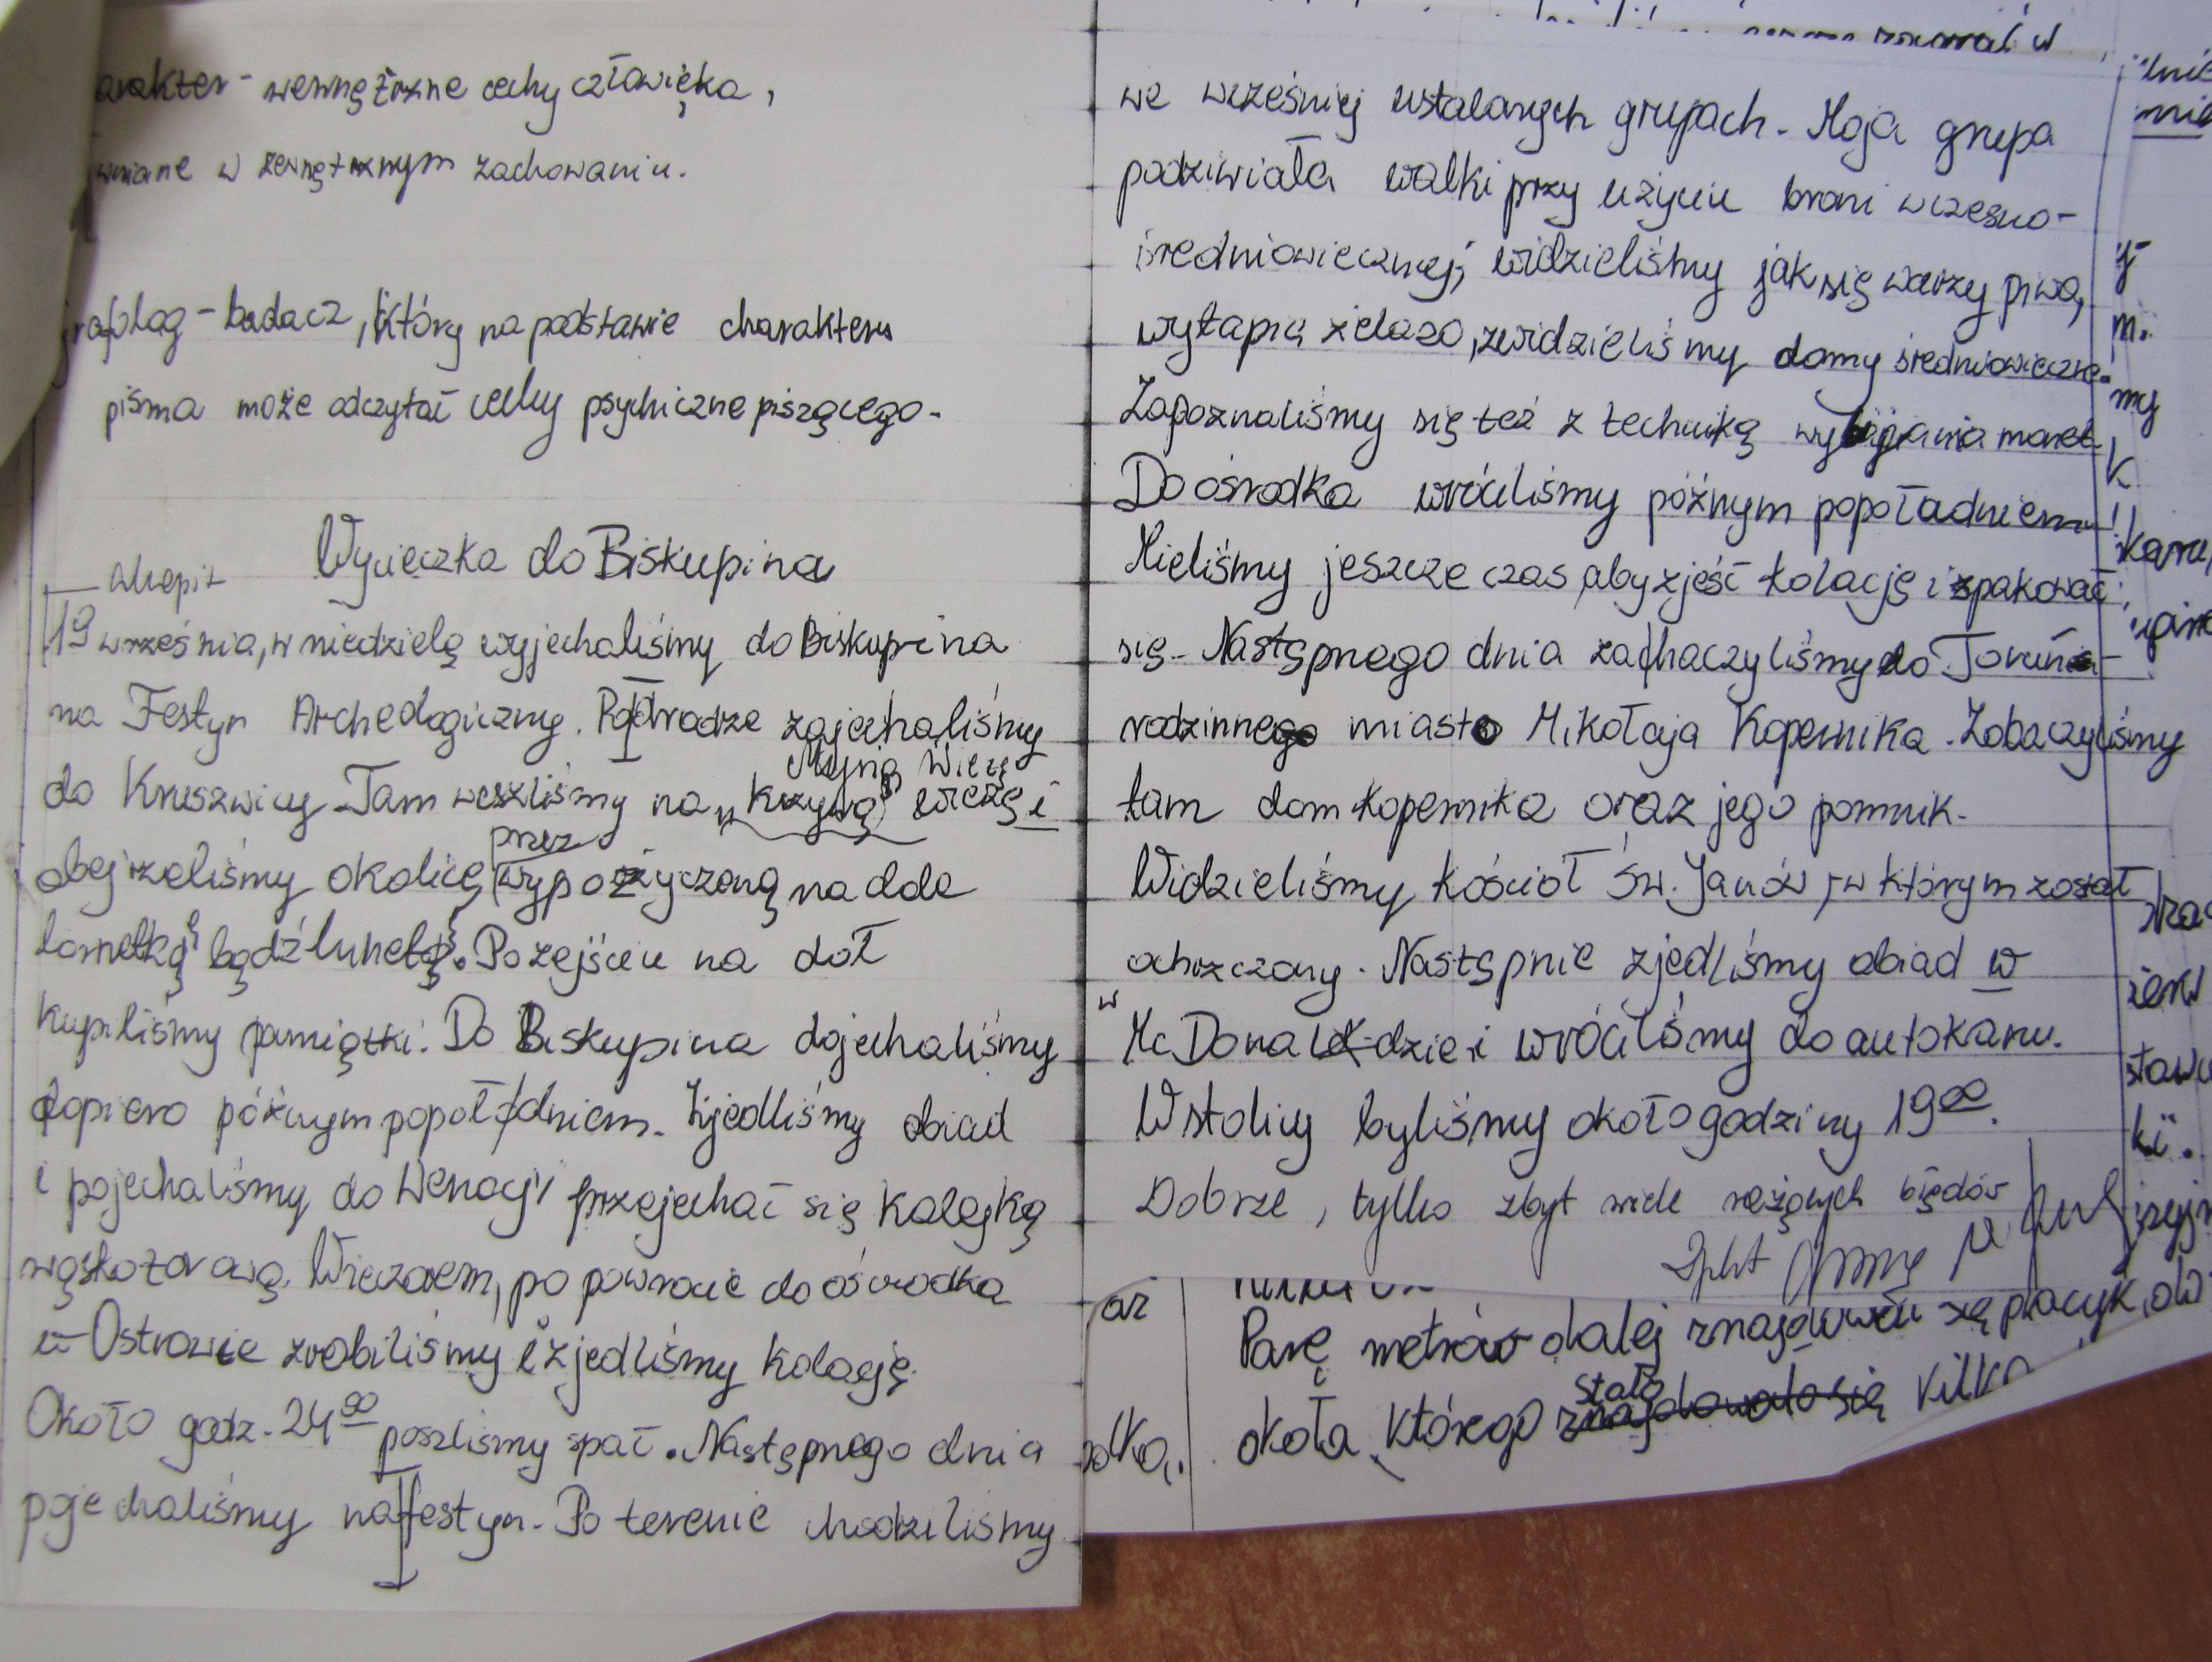 arakter - wewnętrzne cechy człowieka,
wniane w zewnętrznym zachowaniu.
grafolog - badacz, który na podstawie charakteru
pisma może odczytać cechy psychiczne piszącego.
Wycieczka do Biskupina
akapit
19 września, w niedzielę wyjechaliśmy do Biskupina
na Festyn Archeologiczny. Po drodze zajechaliśmy
Mysią Wieżę
do Kruszwicy. Tam weszliśmy na „Krzywą" wieżę i
przez
obejrzeliśmy okolicę wypożyczoną na dole
lornetką bądź lunetą. Po zejściu na dół
kupiliśmy pamiątki. Do Biskupina dojechaliśmy
dopiero późnym popołudniem. Zjedliśmy obiad
i pojechaliśmy do Wenecji przejechać się kolejką
wąskotorową. Wieczorem, po powrocie do ośrodka
w Ostrowie zrobiliśmy i zjedliśmy kolację.
Około godz. 24⁰⁰ poszliśmy spać. Następnego dnia
pojechaliśmy na festyn. Po terenie chodziliśmy
we wcześniej ustalonych grupach. Moja grupa
podziwiała walki przy użyciu broni wczesno-
średniowiecznej, widzieliśmy jak się warzy piwo,
wytapia żelazo, zwidzieliśmy domy średniowieczne.
Zapoznaliśmy się też z techniką wybijania monet.
Do ośrodka wróciliśmy późnym popołudniem
Mieliśmy jeszcze czas, aby zjeść kolację i spakować
się. Następnego dnia zachaczyliśmy do Torunia-
rodzinnego miasto Mikołaja Kopernika. Zobaczyliśmy
tam dom Kopernika oraz jego pomnik.
Widzieliśmy kościół Św. Janów, w którym został
ochrzczony. Następnie zjedliśmy obiad w
w McDonaldzie i wróciliśmy do autokaru.
W stolicy byliśmy około godziny 19⁰⁰.
Dobrze, tylko zbyt wiele rażących błędów
Parę metrów dalej znajdował się placyk,
stało
około którego znajdowało się kilka